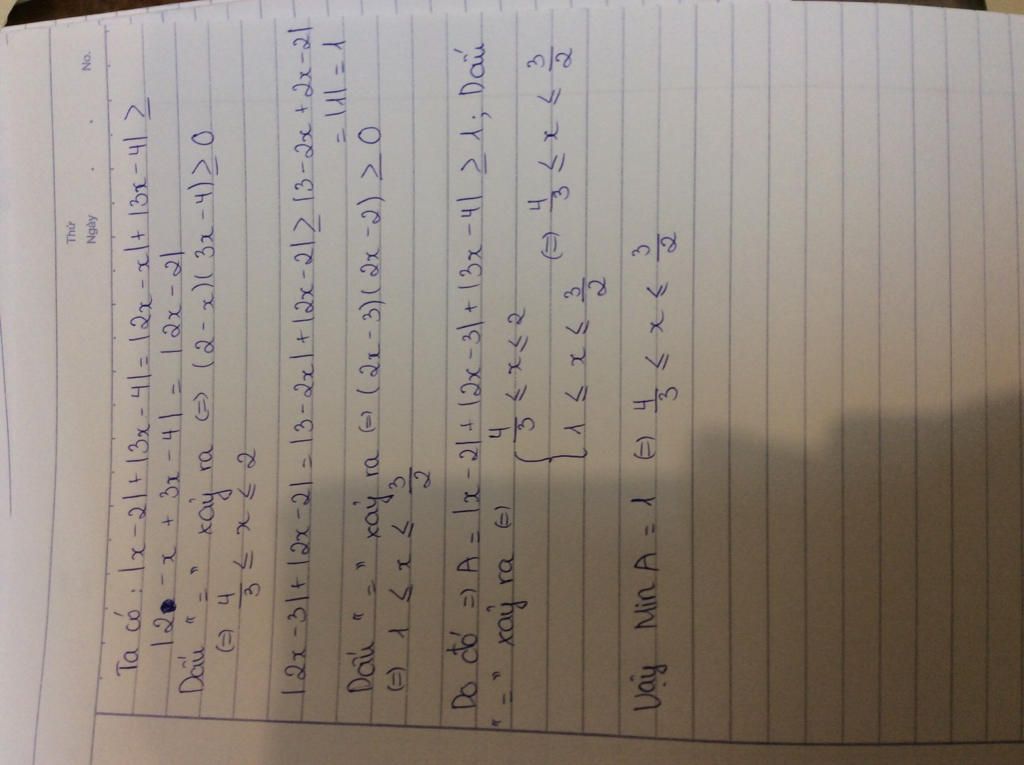 Thứ
Ngày
No.
Ta có : |x - 2| + |3x - 4| = |2x - x| + |3x - 4| ≥
|2 - x + 3x - 4| = |2x - 2|
Dấu " = " xảy ra (=) (2 - x)(3x - 4) ≥ 0
(=) 4/3 ≤ x ≤ 2
|2x - 3| + |2x - 2| = |3 - 2x| + |2x - 2| ≥ |3 - 2x + 2x - 2|
= |1| = 1
Dấu " = " xảy ra (=) (2x - 3)(2x - 2) ≥ 0
(=) 1 ≤ x ≤ 3/2
Do đó =) A = |x - 2| + |2x - 3| + |3x - 4| ≥ 1 ; Dấu
" = " xảy ra (=) { 4/3 ≤ x ≤ 2
1 ≤ x ≤ 3/2 (=) 4/3 ≤ x ≤ 3/2
Vậy Min A = 1 (=) 4/3 ≤ x ≤ 3/2